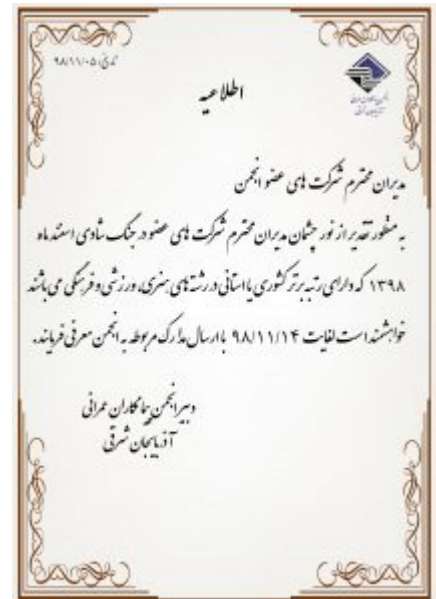 تاریخ: ۹۸/۱۱/۰۵
اطلاعیه
مدیران محترم شرکت های عضو انجمن
به منظور تقدیر از نور چشمان مدیران محترم شرکت های عضو در جنگ شادی اسفند ماه
۱۳۹۸ که دارای رتبه برتر کشوری یا استانی در رشته های هنری، ورزشی و فرهنگی می باشند
خواهشمند است لغایت ۹۸/۱۱/۱۴ با ارسال مدارک مربوطه به انجمن معرفی فرمایند.
دبیر انجمن پیمانکاران عمرانی
آذربایجان شرقی